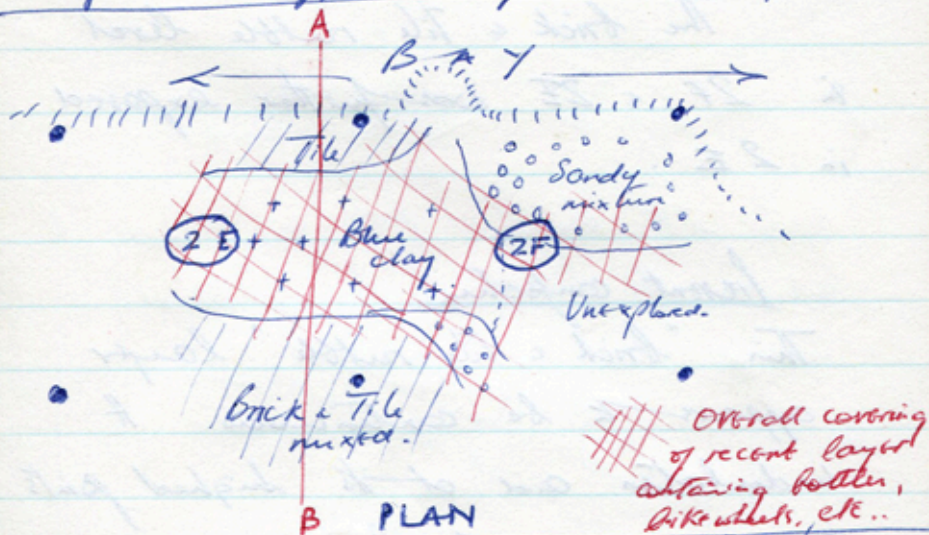 A
B → Y
Tile
Sandy
mixture
2 E
Blue
clay
2F
Unexplored.
Brick & Tile
mixed.
Overall covering
of recent layer
containing bottles,
bike wheels, etc..
B
PLAN